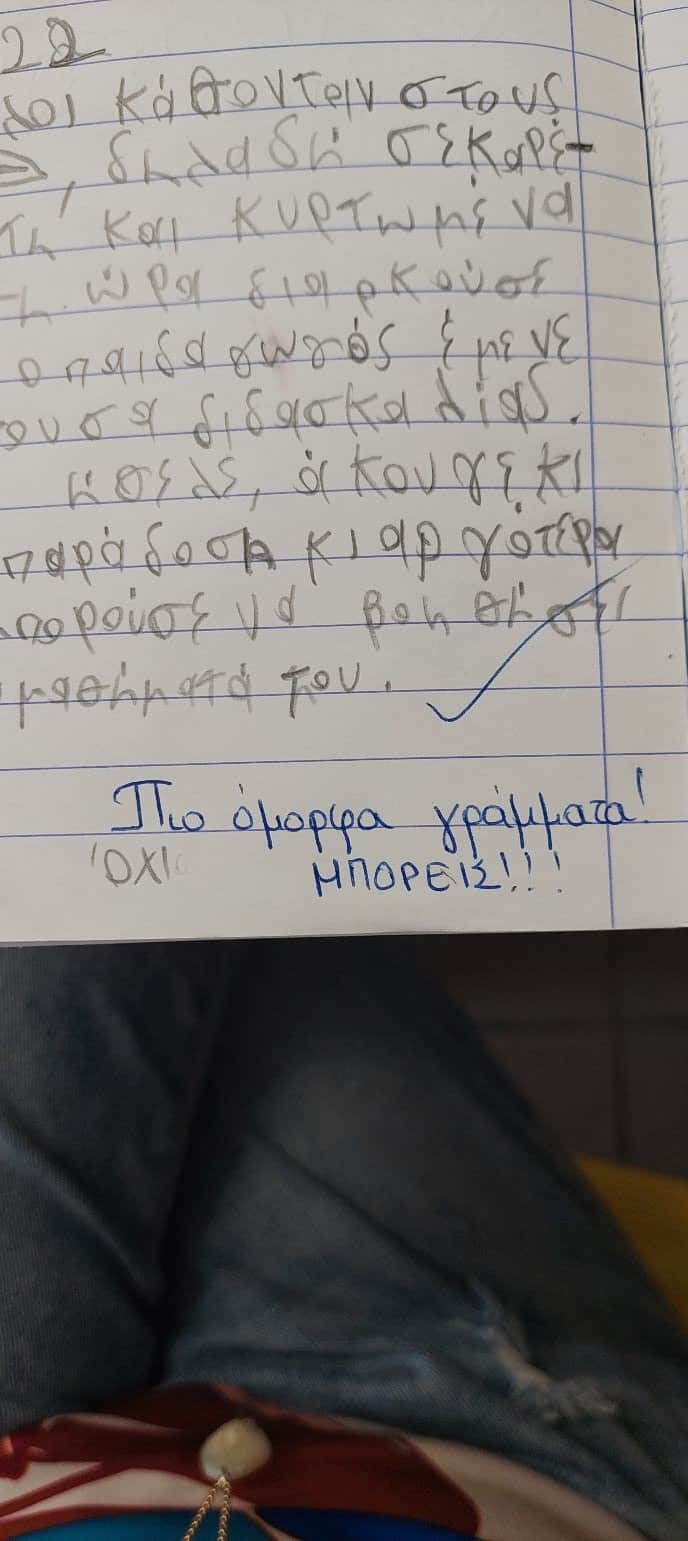 22
λοι κάθονταιν στους
, δηλαδή σεκαρέ-
τη και κυρτωμένα
η ώρα διαρκούσε
ο παιδαγωγός έμενε
ουσα διδασκαλίας.
ήθελε, άκουγε κι
παράδοση κι αργότερα
πορούσε να βοηθήσει
μαθήματά του.
Πιο όμορφα γράμματα!
ΌΧΙ ΜΠΟΡΕΙΣ!!!